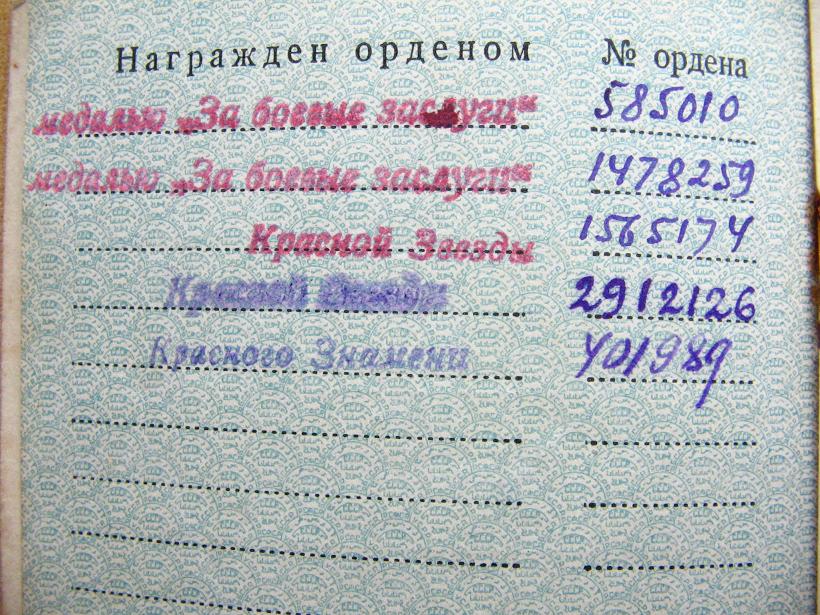 Награжден орденом № ордена
медалью „За боевые заслуги" 585010
медалью „За боевые заслуги" 1478259
Красной Звезды 1565174
Красной Звезды 2912126
Красного Знамени 401989